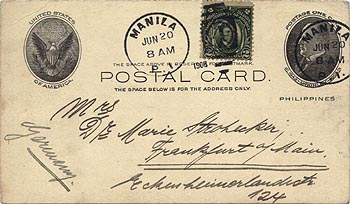 UNITED STATES
OF AMERICA
MANILA
JUN 20
8 AM
P.I.
1908
POSTAGE ONE C
MANILA
JUN 20
8 AM
P.I.
THE SPACE ABOVE IS RESERVED FOR POSTMARK
POSTAL CARD.
THE SPACE BELOW IS FOR THE ADDRESS ONLY.
PHILIPPINES
Mrs
Marie Strohecker,
Frankfurt a/ Main.
Eckenheimerlandstr
124
Germany